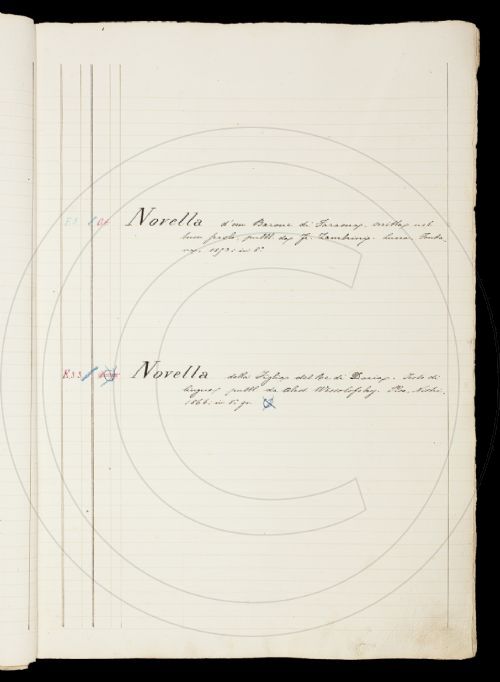 Novella d'un Barone di Faraona. scritta nel
buon secolo, pubbl. da F. Zambrini. Lucca, Fonta
na. 1853: in 8°
E.33 Novella della Figlia del Re di Dacia. Testo di
lingua pubbl. da Wesselofsky. Pisa, Nistri
1866: in 8. gr.
C